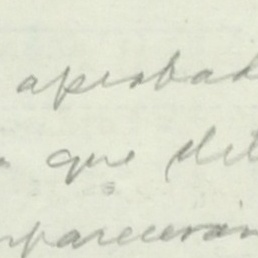 aprobad
que det
mparecerán